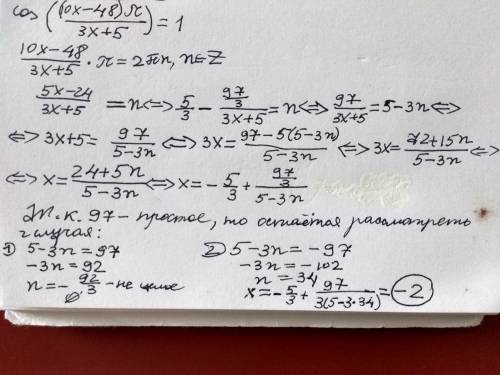 cos ((10x-48)π / 3x+5) = 1
10x-48 / 3x+5 · π = 2πn, n∈Z
5x-24 / 3x+5 = n <=> 5/3 - 97/3 / 3x+5 = n <=> 97 / 3x+5 = 5-3n <=>
<=> 3x+5 = 97 / 5-3n <=> 3x = 97-5(5-3n) / 5-3n <=> 3x = 72+15n / 5-3n <=>
<=> x = 24+5n / 5-3n <=> x = -5/3 + 97/3 / 5-3n
Т.к. 97 - простое, то остаётся рассмотреть
2 случая:
1) 5-3n = 97
-3n = 92
n = -92/3 - не целое
2) 5-3n = -97
-3n = -102
n = 34
x = -5/3 + 97 / 3(5-3·34) = -2